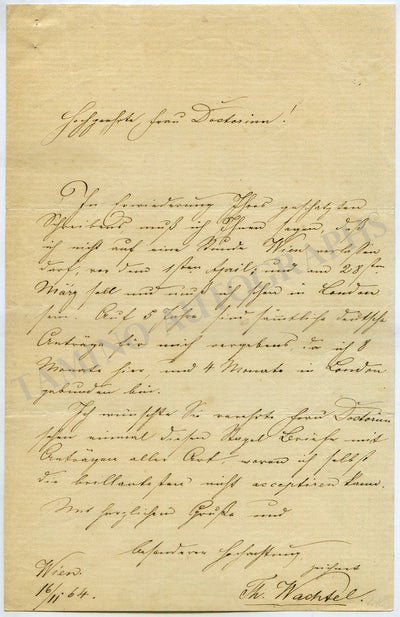 Hochgeehrte Frau Doctorinn!
In Erwiederung Ihres geschätzten
Schreibens muß ich Ihnen sagen, daß
ich nicht auf eine Stunde Wien verlassen
darf, vor dem 1sten April, und am 28sten
März soll und muß ich schon in London
sein. Auf 5 Jahre sind sämmtliche deutsche
Anträge für mich vergebens, da ich 8
Monate hier, und 4 Monate in London
gebunden bin.
Ich wünschte Sie verehrte Frau Doctorinn
sehen einmal diesen Stapel Briefe mit
Anträgen aller Art, wovon ich selbst
die brillantesten nicht acceptiren kann.
Mit herzlichem Gruße und
besonderer Hochachtung
zeichnet
Wien.
16/11 64.
Th. Wachtel.
TAMINO AUTOGRAPHS